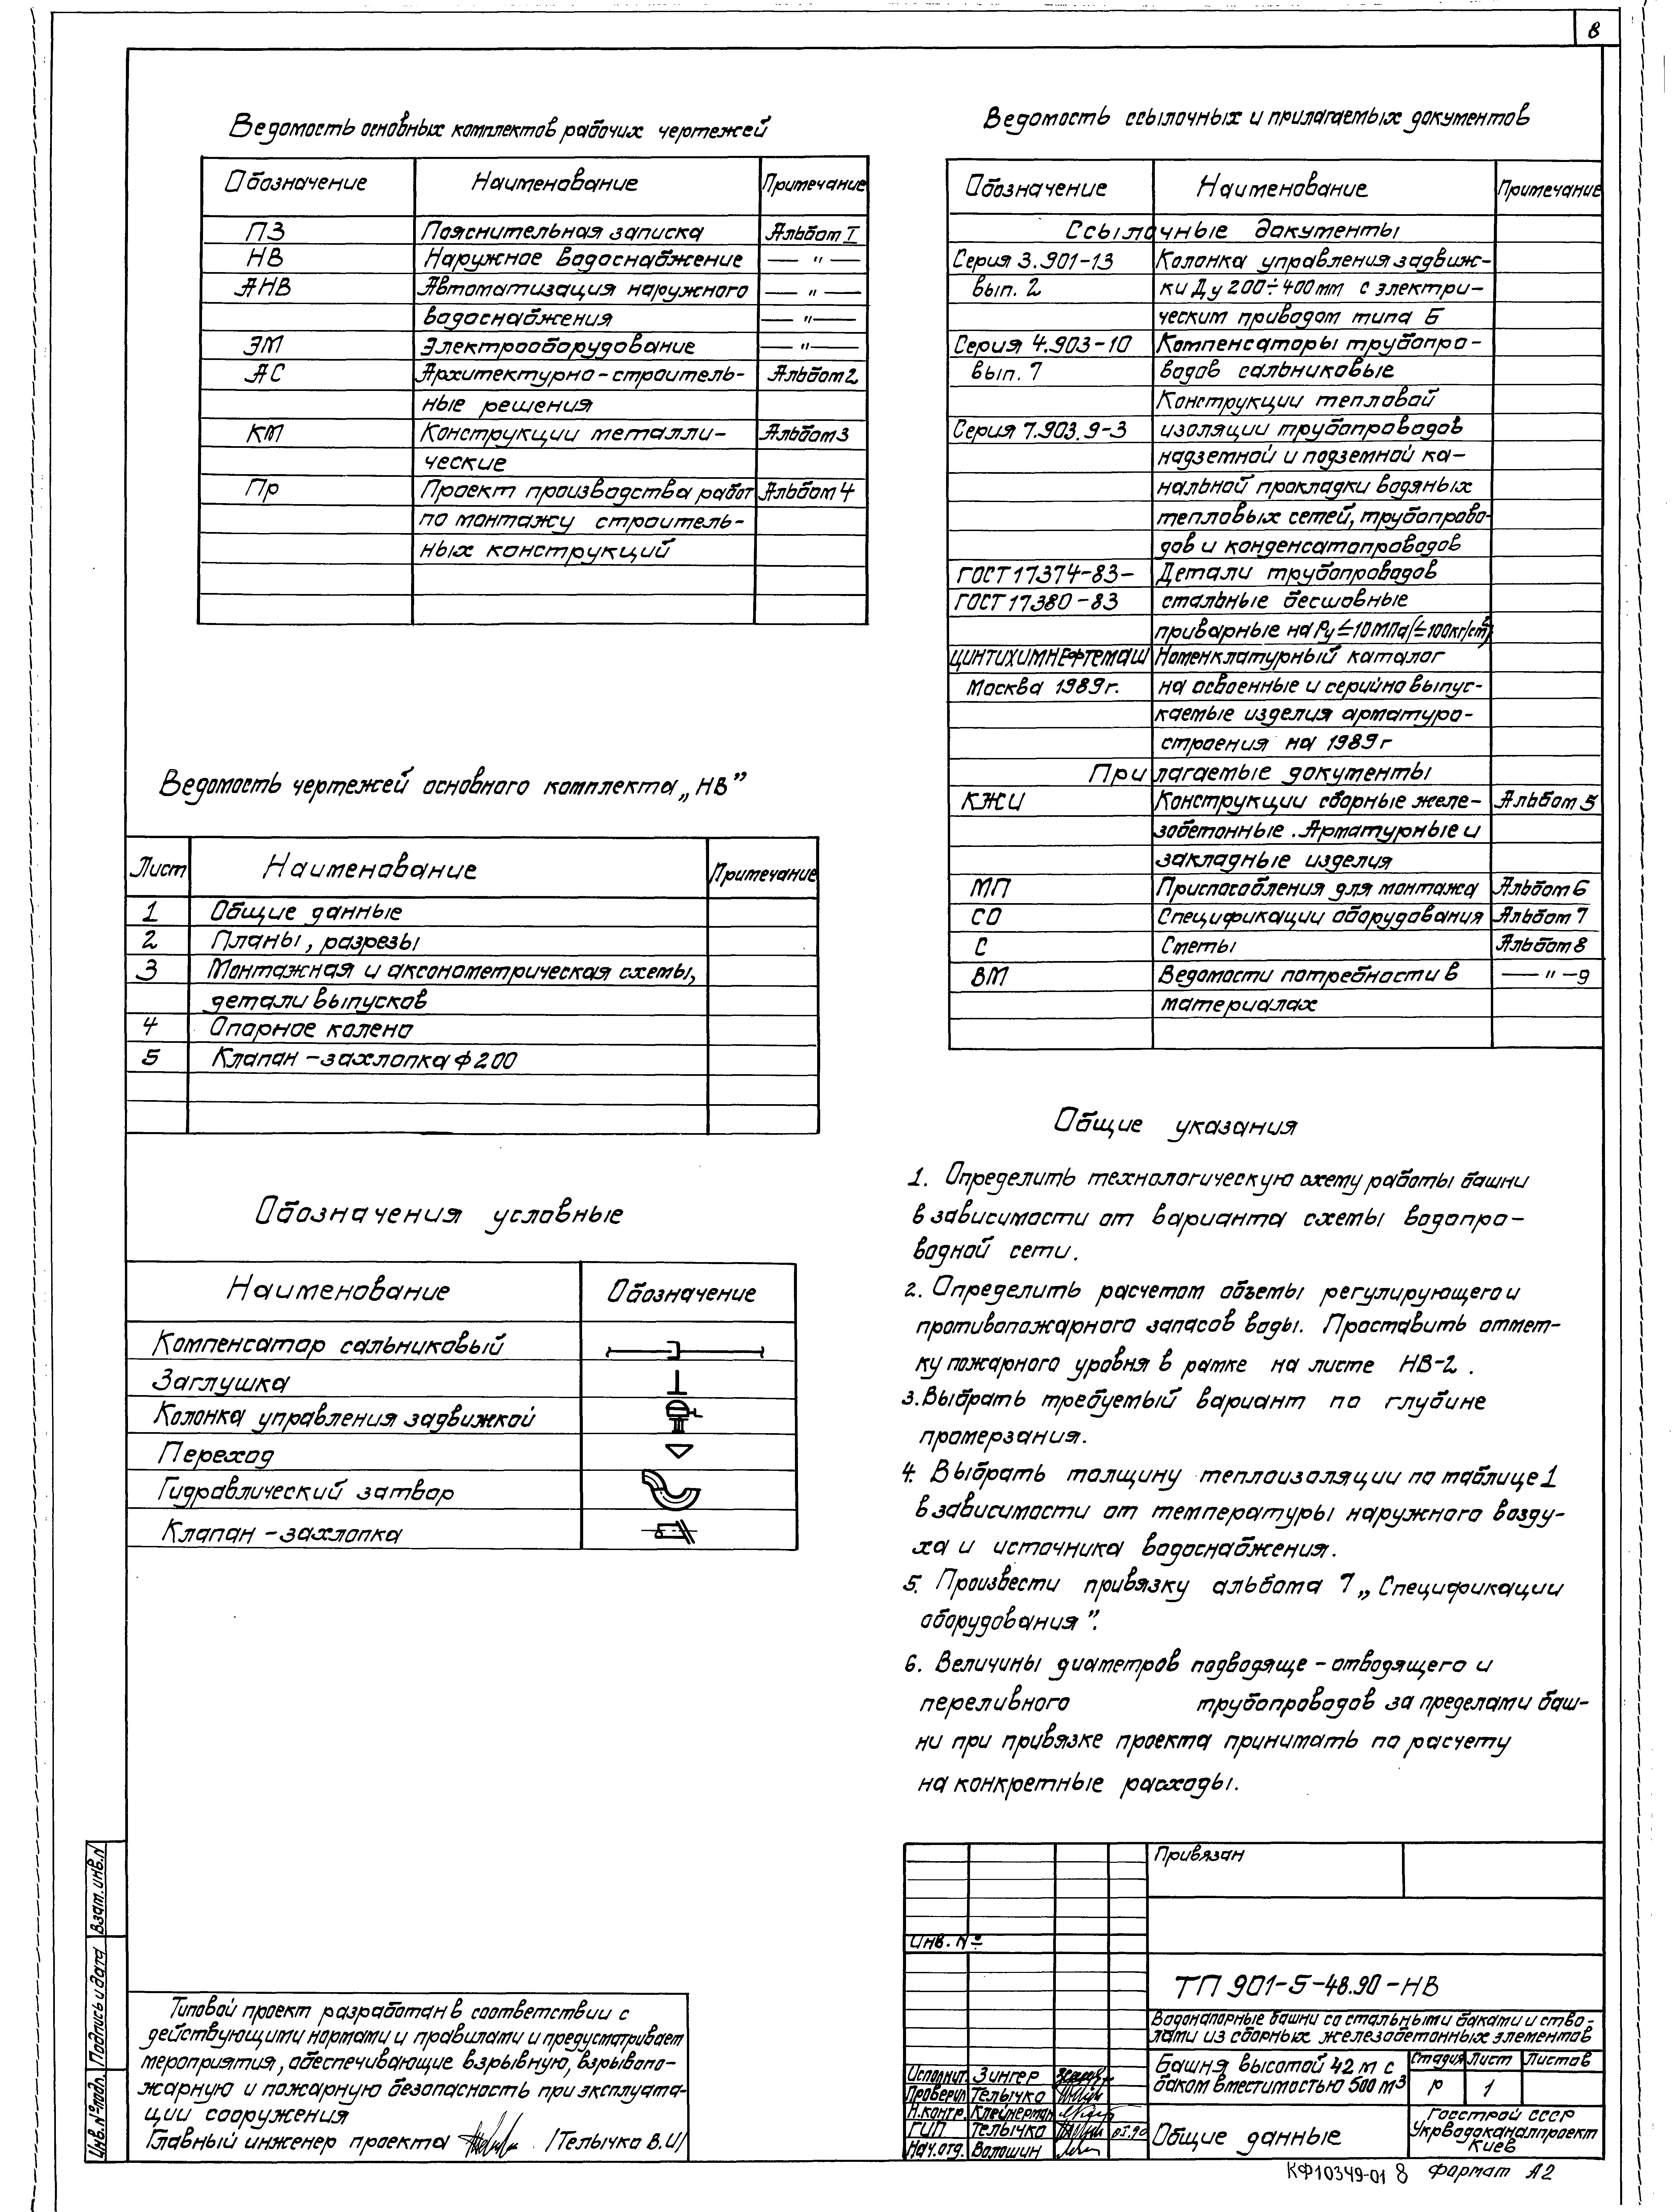 8
Ведомость основных комплектов рабочих чертежей
Обозначение Наименование Примечание
ПЗ Пояснительная записка Альбом I
НВ Наружное водоснабжение — " —
АНВ Автоматизация наружного — " —
водоснабжения — " —
ЭМ Электрооборудование — " —
АС Архитектурно-строитель- Альбом 2
ные решения
КМ Конструкции металли- Альбом 3
ческие
Пр Проект производства работ Альбом 4
по монтажу строитель-
ных конструкций
Ведомость чертежей основного комплекта „НВ”
Лист Наименование Примечание
1 Общие данные
2 Планы, разрезы
3 Монтажная и аксонометрическая схемы,
детали выпусков
4 Опорное колено
5 Клапан-захлопка ф200
Обозначения условные
Наименование Обозначение
Компенсатор сальниковый
Заглушка
Колонка управления задвижкой
Переход
Гидравлический затвор
Клапан-захлопка
Ведомость ссылочных и прилагаемых документов
Обозначение Наименование Примечание
Ссылочные документы
Серия 3.901-13 Колонка управления задвиж-
вып. 2 ки Ду 200÷400мм с электри-
ческим приводом типа Б
Серия 4.903-10 Компенсаторы трубопро-
вып. 7 водов сальниковые
Конструкции тепловой
Серия 7.903.9-3 изоляции трубопроводов
надземной и подземной ка-
нальной прокладки водяных
тепловых сетей, трубопрово-
дов и конденсатопроводов
ГОСТ 17374-83- Детали трубопроводов
ГОСТ 17380-83 стальные бесшовные
приварные на Ру≤10МПа(≤100кг/см²)
ЦИНТИХИМНЕФТЕМАШ Номенклатурный каталог
Москва 1989г. на освоенные и серийно выпус-
каемые изделия арматуро-
строения на 1989г
Прилагаемые документы
КЖИ Конструкции сборные желе- Альбом 5
зобетонные. Арматурные и
закладные изделия
МП Приспособления для монтажа Альбом 6
СО Спецификации оборудования Альбом 7
С Сметы Альбом 8
ВМ Ведомости потребности в — " —9
материалах
Общие указания
1. Определить технологическую схему работы башни
в зависимости от варианта схемы водопро-
водной сети.
2. Определить расчетом объемы регулирующего и
противопожарного запасов воды. Проставить отмет-
ку пожарного уровня в рамке на листе НВ-2.
3. Выбрать требуемый вариант по глубине
промерзания.
4. Выбрать толщину теплоизоляции по таблице 1
в зависимости от температуры наружного возду-
ха и источника водоснабжения.
5. Произвести привязку альбома 7 „Спецификации
оборудования”.
6. Величины диаметров подводяще-отводящего и
переливного трубопроводов за пределами баш-
ни при привязке проекта принимать по расчету
на конкретные расходы.
Взам. инв. N
Подпись и дата
Инв. № подл.
Типовой проект разработан в соответствии с
действующими нормами и правилами и предусматривает
мероприятия, обеспечивающие взрывную, взрывопо-
жарную и пожарную безопасность при эксплуата-
ции сооружения
Главный инженер проекта /Телычко В.И/
Привязан
Инв. №
ТП 901-5-48.90-НВ
Водонапорные башни со стальными баками и ство-
лами из сборных железобетонных элементов
Исполнит. Зингер
Проверил Телычко
Н.контр. Клейнерман
ГИП Телычко
Нач.отд. Волошин
Башня высотой 42 м с
баком вместимостью 500 м³
Стадия Лист Листов
р 1
Общие данные
Госстрой СССР
Укрводоканалпроект
Киев
КФ10349-01 8 Формат А2